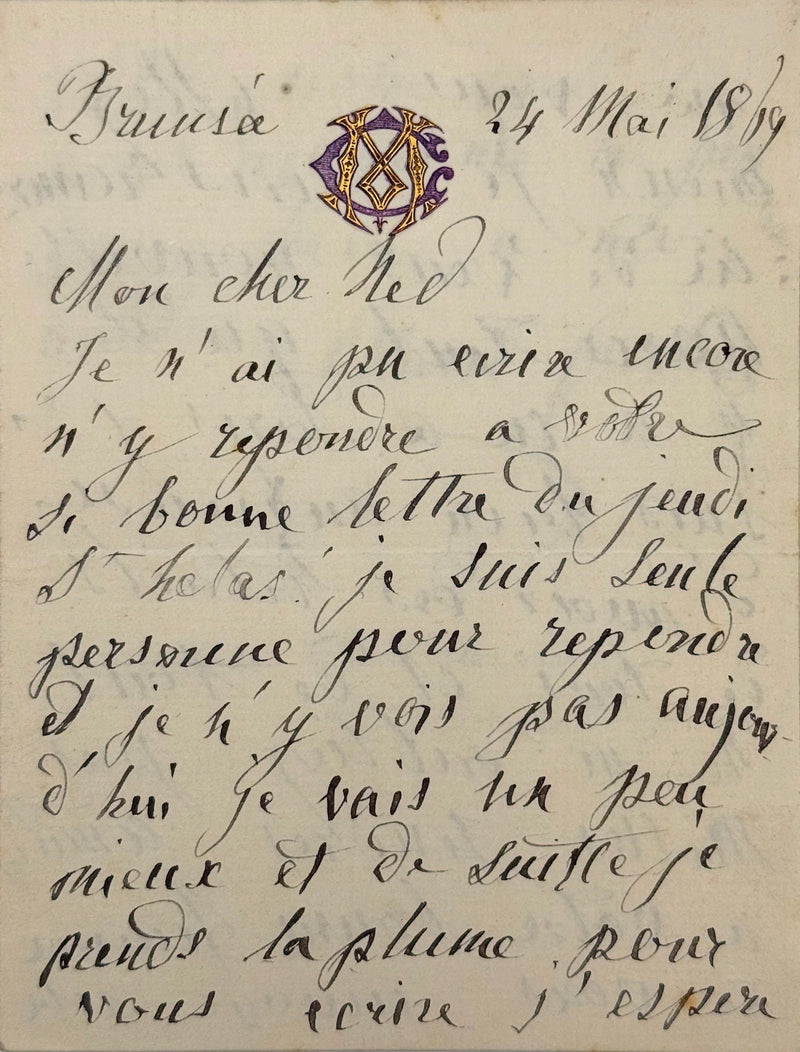 24 Mai 18/69
Mon cher Ned
Je n'ai pu ecrire encore
n'y repondre a votre
si bonne lettre du jeudi
St helas! je suis seule
personne pour repondre
et je n'y vois pas aujour-
d'hui je vais un peu
mieux et de suitte je
prends la plume pour
vous ecrire j'espere